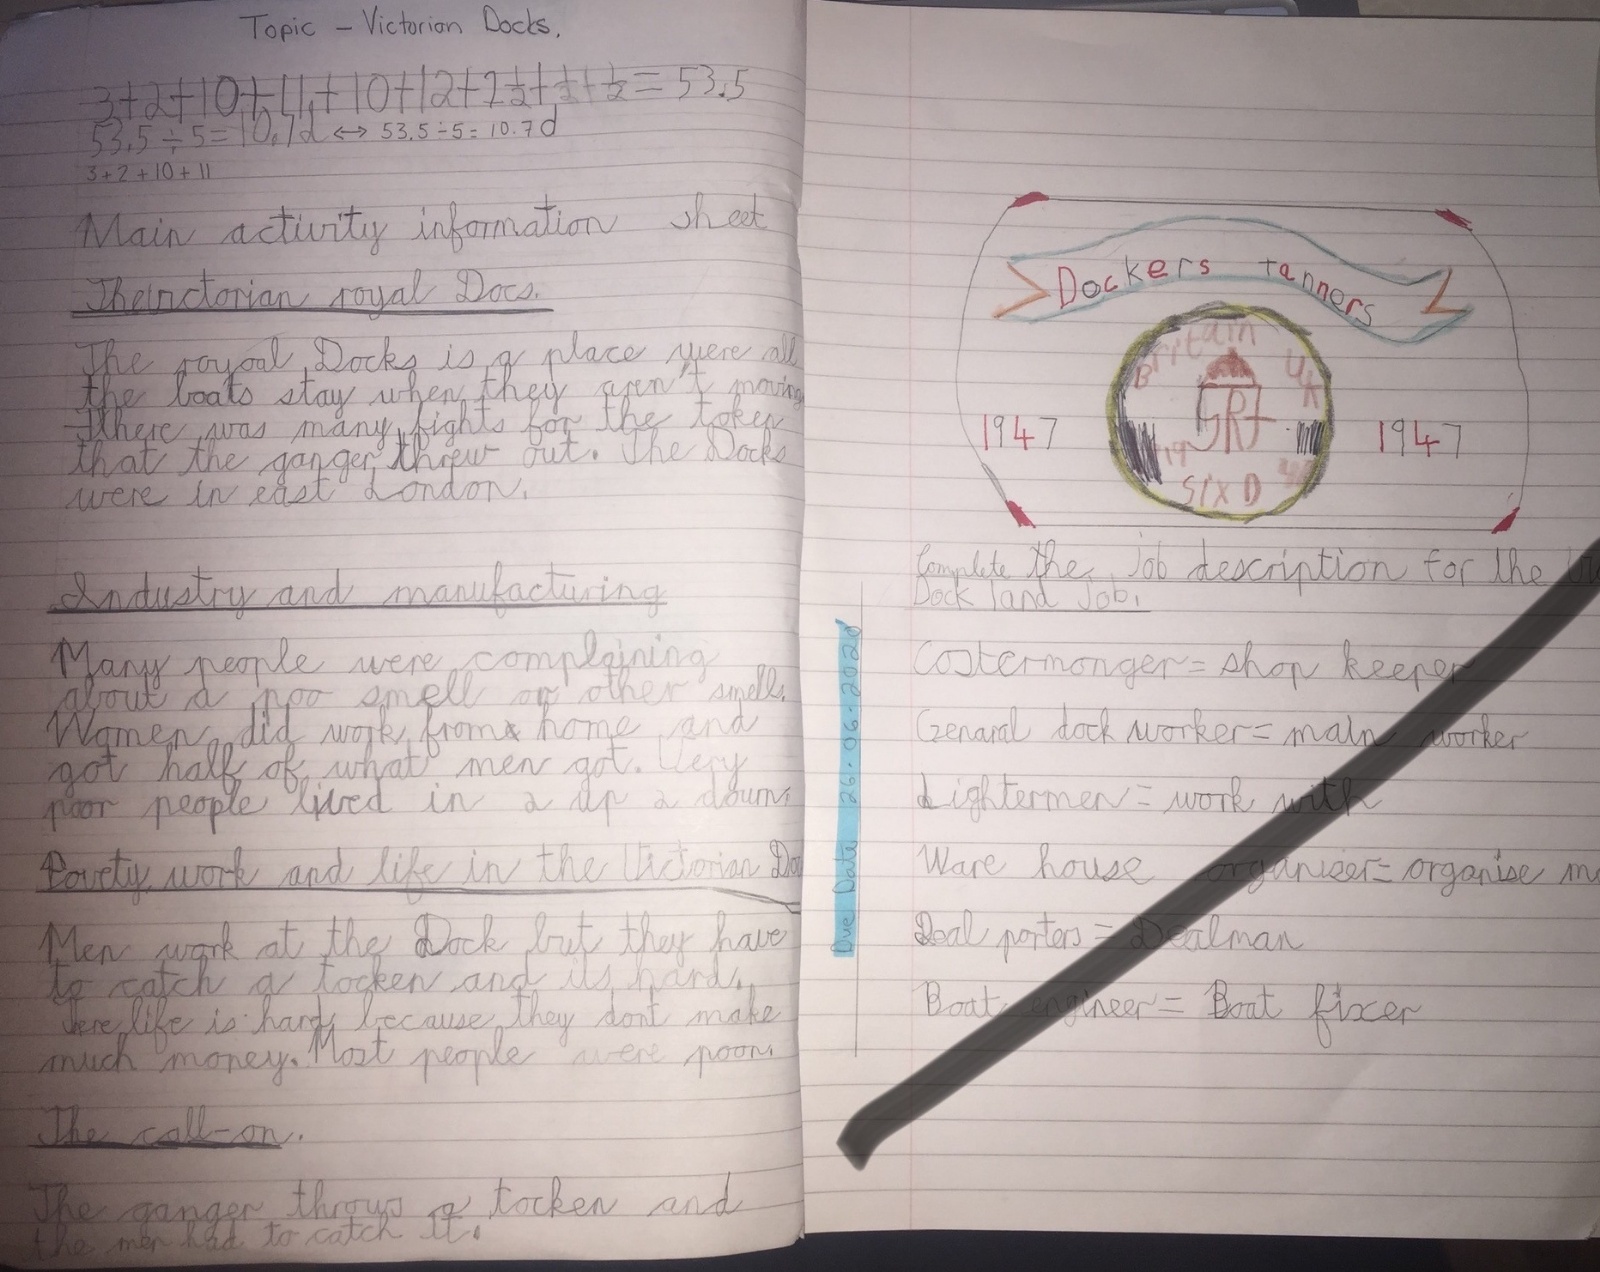 Topic - Victorian Docks.
3+2+10+11+10+12+2½+½+½=53.5
53.5÷5=10.7d ↔ 53.5÷5=10.7d
3+2+10+11
Main activity information sheet
royal Docs.
The royoal Docks is a place were all
the boats stay when they aren't moving
there was many fights for the token
that the ganger threw out. The Docks
were in east London.
Industry and manufacturing
Many people were complaining
about a poo smell or other smells.
Women did work from home and
got half of what men got. Very
poor people lived in a up a down
Povety work and life in the Victorian Do
Men work at the Dock but they have
to catch a tocken and its hard.
life is hard because they dont make
much money. Most people were poor.
The call-on.
The ganger throws a tocken and
the men had to catch it.
Dockers tanners
Britain UK
1947
SIX D
1947
Complete the job description for the
Dock land Job.
Due Date 26.06.2020
Costermonger = shop keeper
Genaral dock worker = main worker
Lightermen = work with
Ware house organiser = organise
Deal porters = Dealman
Boat engineer = Boat fixer